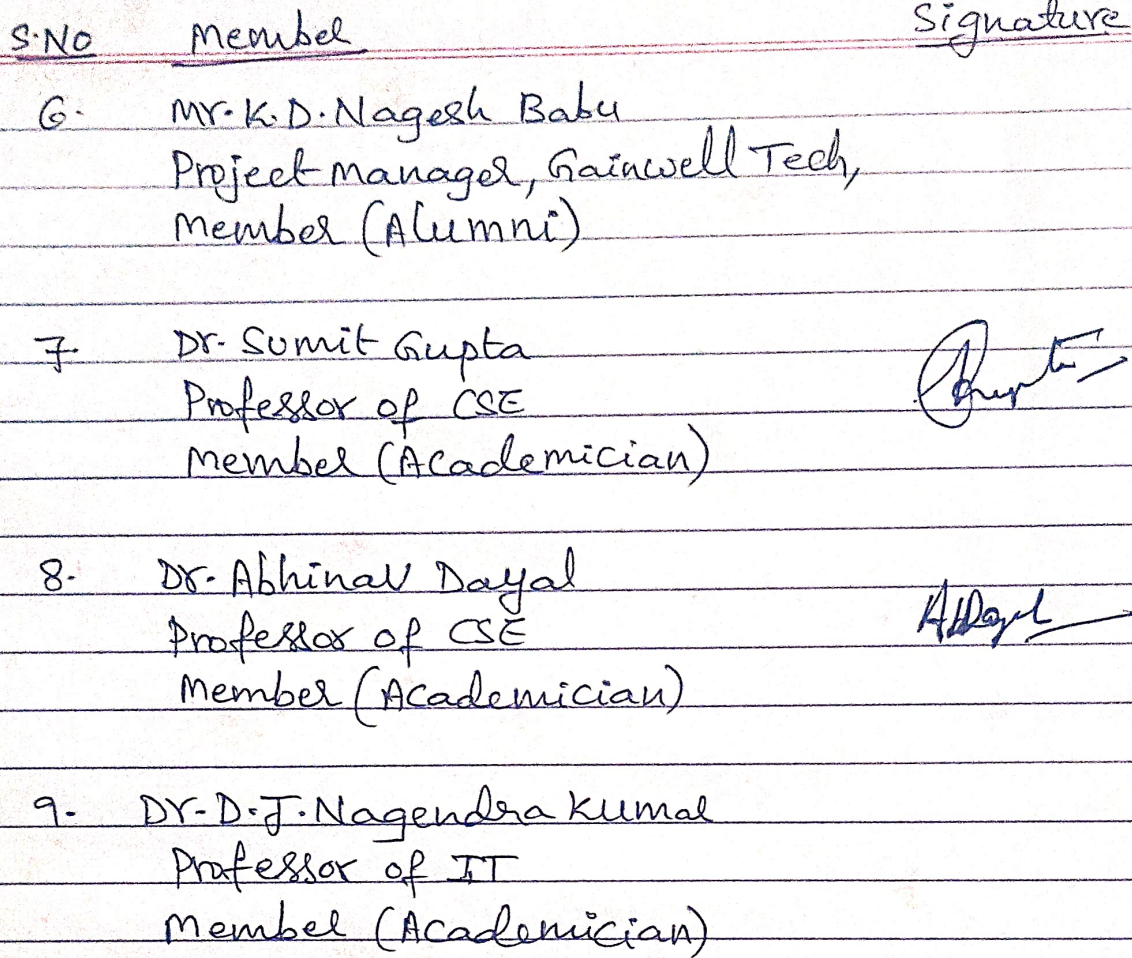 S.NO Member Signature
6. Mr. K. D. Nagesh Babu
Project Manager, Gainwell Tech,
Member (Alumni)
7. Dr. Sumit Gupta
Professor of CSE
Member (Academician)
8. Dr. Abhinav Dayal
Professor of CSE
Member (Academician)
9. Dr. D. J. Nagendra Kumar
Professor of IT
Member (Academician)